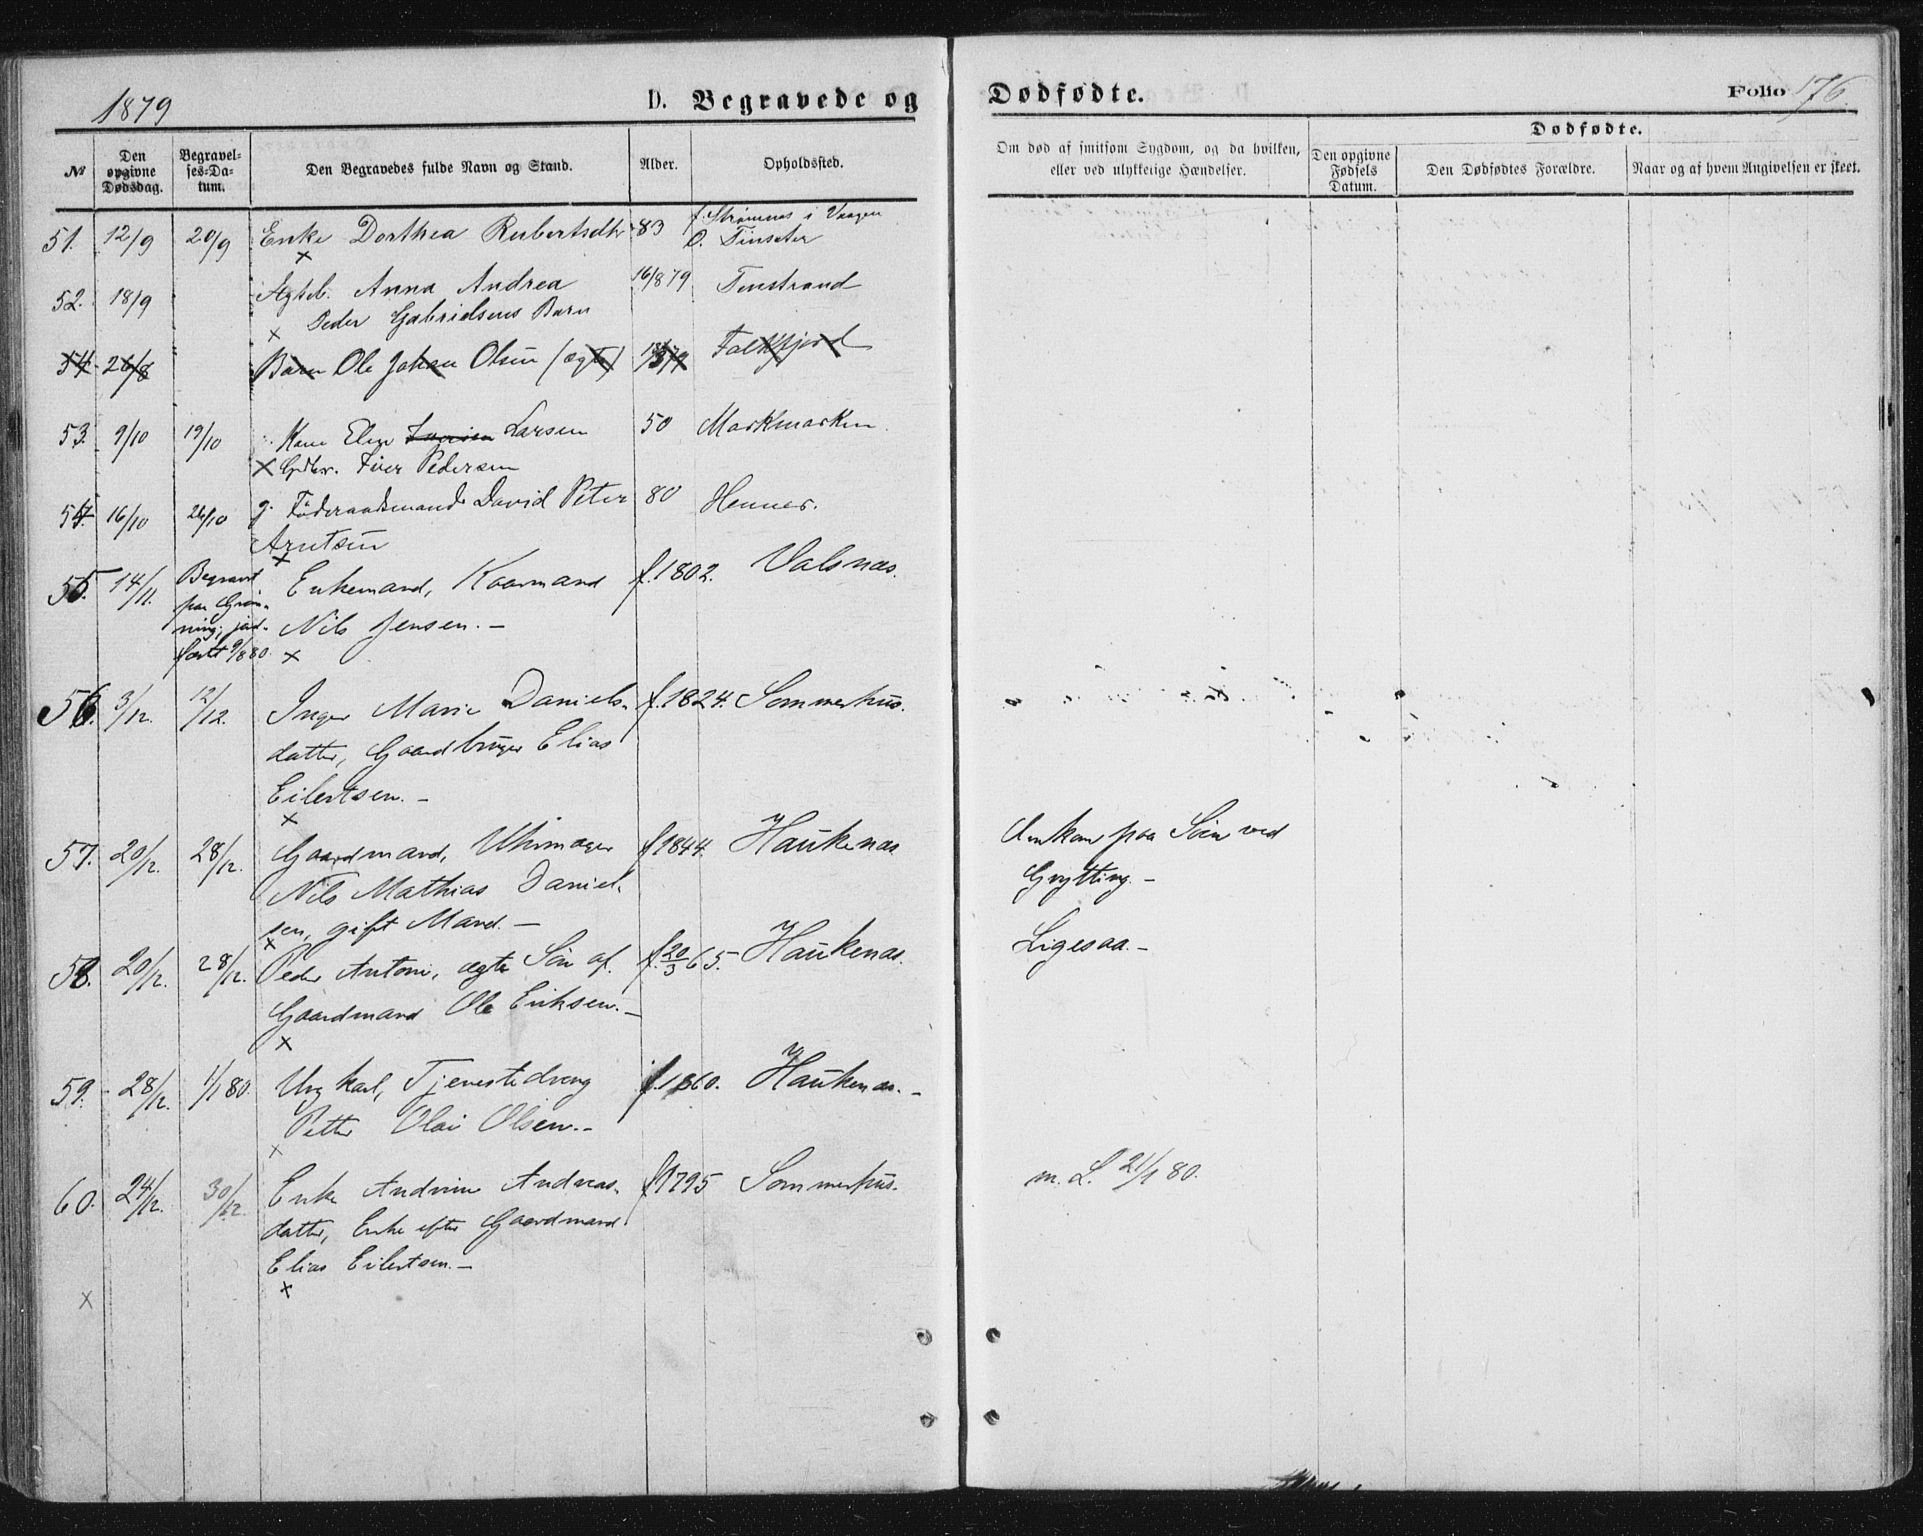 1879
D. Begravede og Dødfødte. Folio 176.
№ Den opgivne Dødsdag. Begravelses-Datum. Den Begravedes fulde Navn og Stand. Alder. Opholdssted. Om død af smitsom Sygdom, og da hvilken, eller ved ulykkelige Hændelser. Dødfødte. Den opgivne Fødsels Datum. Den Dødfødtes Forældre. Naar og af hvem Angivelsen er skeet.
51. 12/9 20/9 Enke Dorthea Rubertsdtr 83 f. Strømnæs i Vaagen
O. Tinseter
×
52. 18/9 Ægteb. Anna Andrea 16/8 79 Tenstrand
Peder Gabrielsens Barn
×
54 26/8 Barn Ole Johan Olsen (ægte) Falkfjord
53. 9/10 19/10 Kone Elen Larsen 50 Markmarken.
× Grdbr. Iver Pedersen
54. 16/10 26/10 g. Føderaadsmand David Peter 80 Hennes.
Arntsen
×
55. 14/11. Begravet Enkemand, Kaarmand f. 1802. Valsnæs.
paa Grøn-
ning; jord- Nils Jensen. —
fæstet 9/8 80. ×
56. 3/12. 12/12. Inger Marie Daniels- f. 1824. Sommerhus.
datter, Gaardbruger Elias
Eilertsen. —
×
57. 20/12. 28/12. Gaardmand, Uhrmager f 1844. Haukenæs Omkom paa Søen ved
Nils Mathias Daniel- Grytting. —
sen, gift Mand. —
×
58. 20/12. 28/12. Peder Antoni, ægte Søn af f. 20/3 65. Haukenæs. Ligesaa. —
Gaardmand Ole Eriksen. —
×
59. 28/12. 1/1 80. Ungkarl, Tjenestedreng f. 1860. Haukenæs. —
Petter Olai Olsen. —
×
60. 24/12. 30/12. Enke Andrine Andreas- f 1795 Sommerhus. m. L. 21/1 80.
datter, Enke efter Gaardmand
Elias Eilertsen. —
×
×